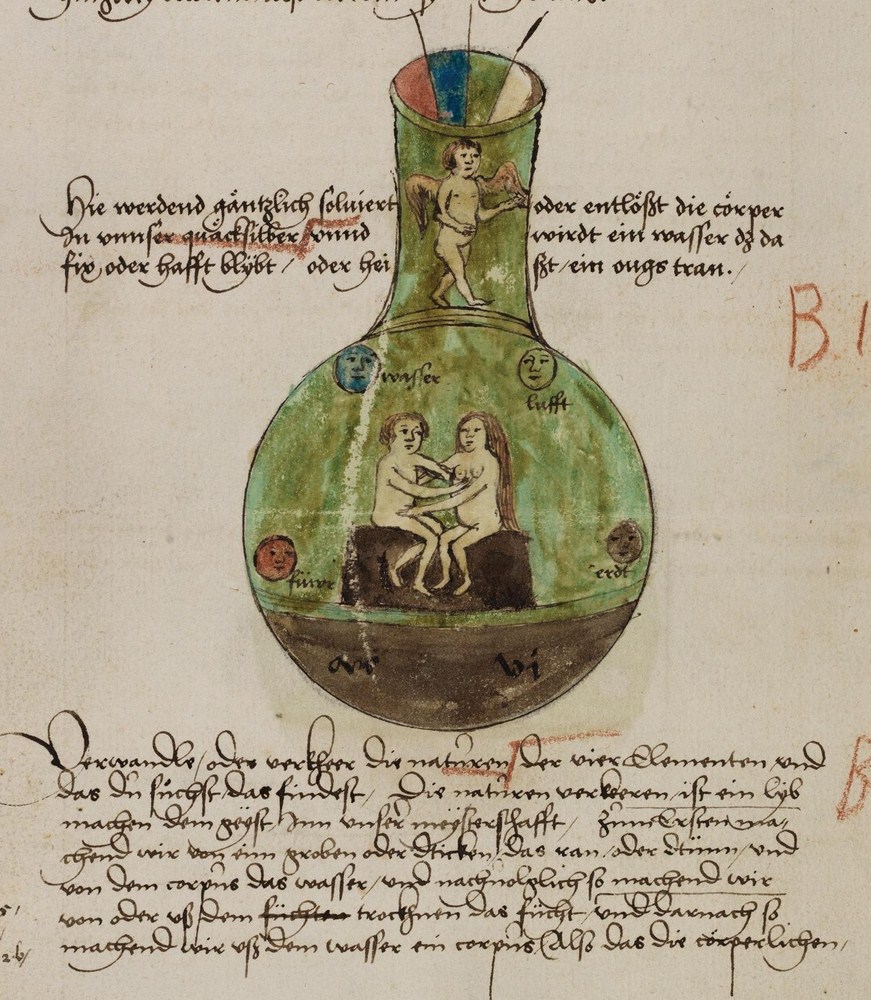 Hie werdend gäntzlich solviert oder entlößt die cörper
In unnser quäcksilber unnd wirdt ein wasser dz da
fix oder hafft blybt / oder hei ßt / ein ougs tran. /
B
wasser
lufft
füwr
erdt
vi
Verwandle / oder verkheer die natůren / der vier Elementen / und
das dů sůchst / das findest / Die natůren verkeeren / ist ein lyb
machen dem geyst / Inn unser meysterschafft / Zům Ersten ma-
chend wir von eim groben oder dicken / das ran / oder dünn / und
von dem corpůs das wasser / und nachvolglich so machend wir
von oder uß dem füchten trocknen das fücht / und darnach so
machend wir uß dem wasser ein corpůs / Also das die cörperlichen /